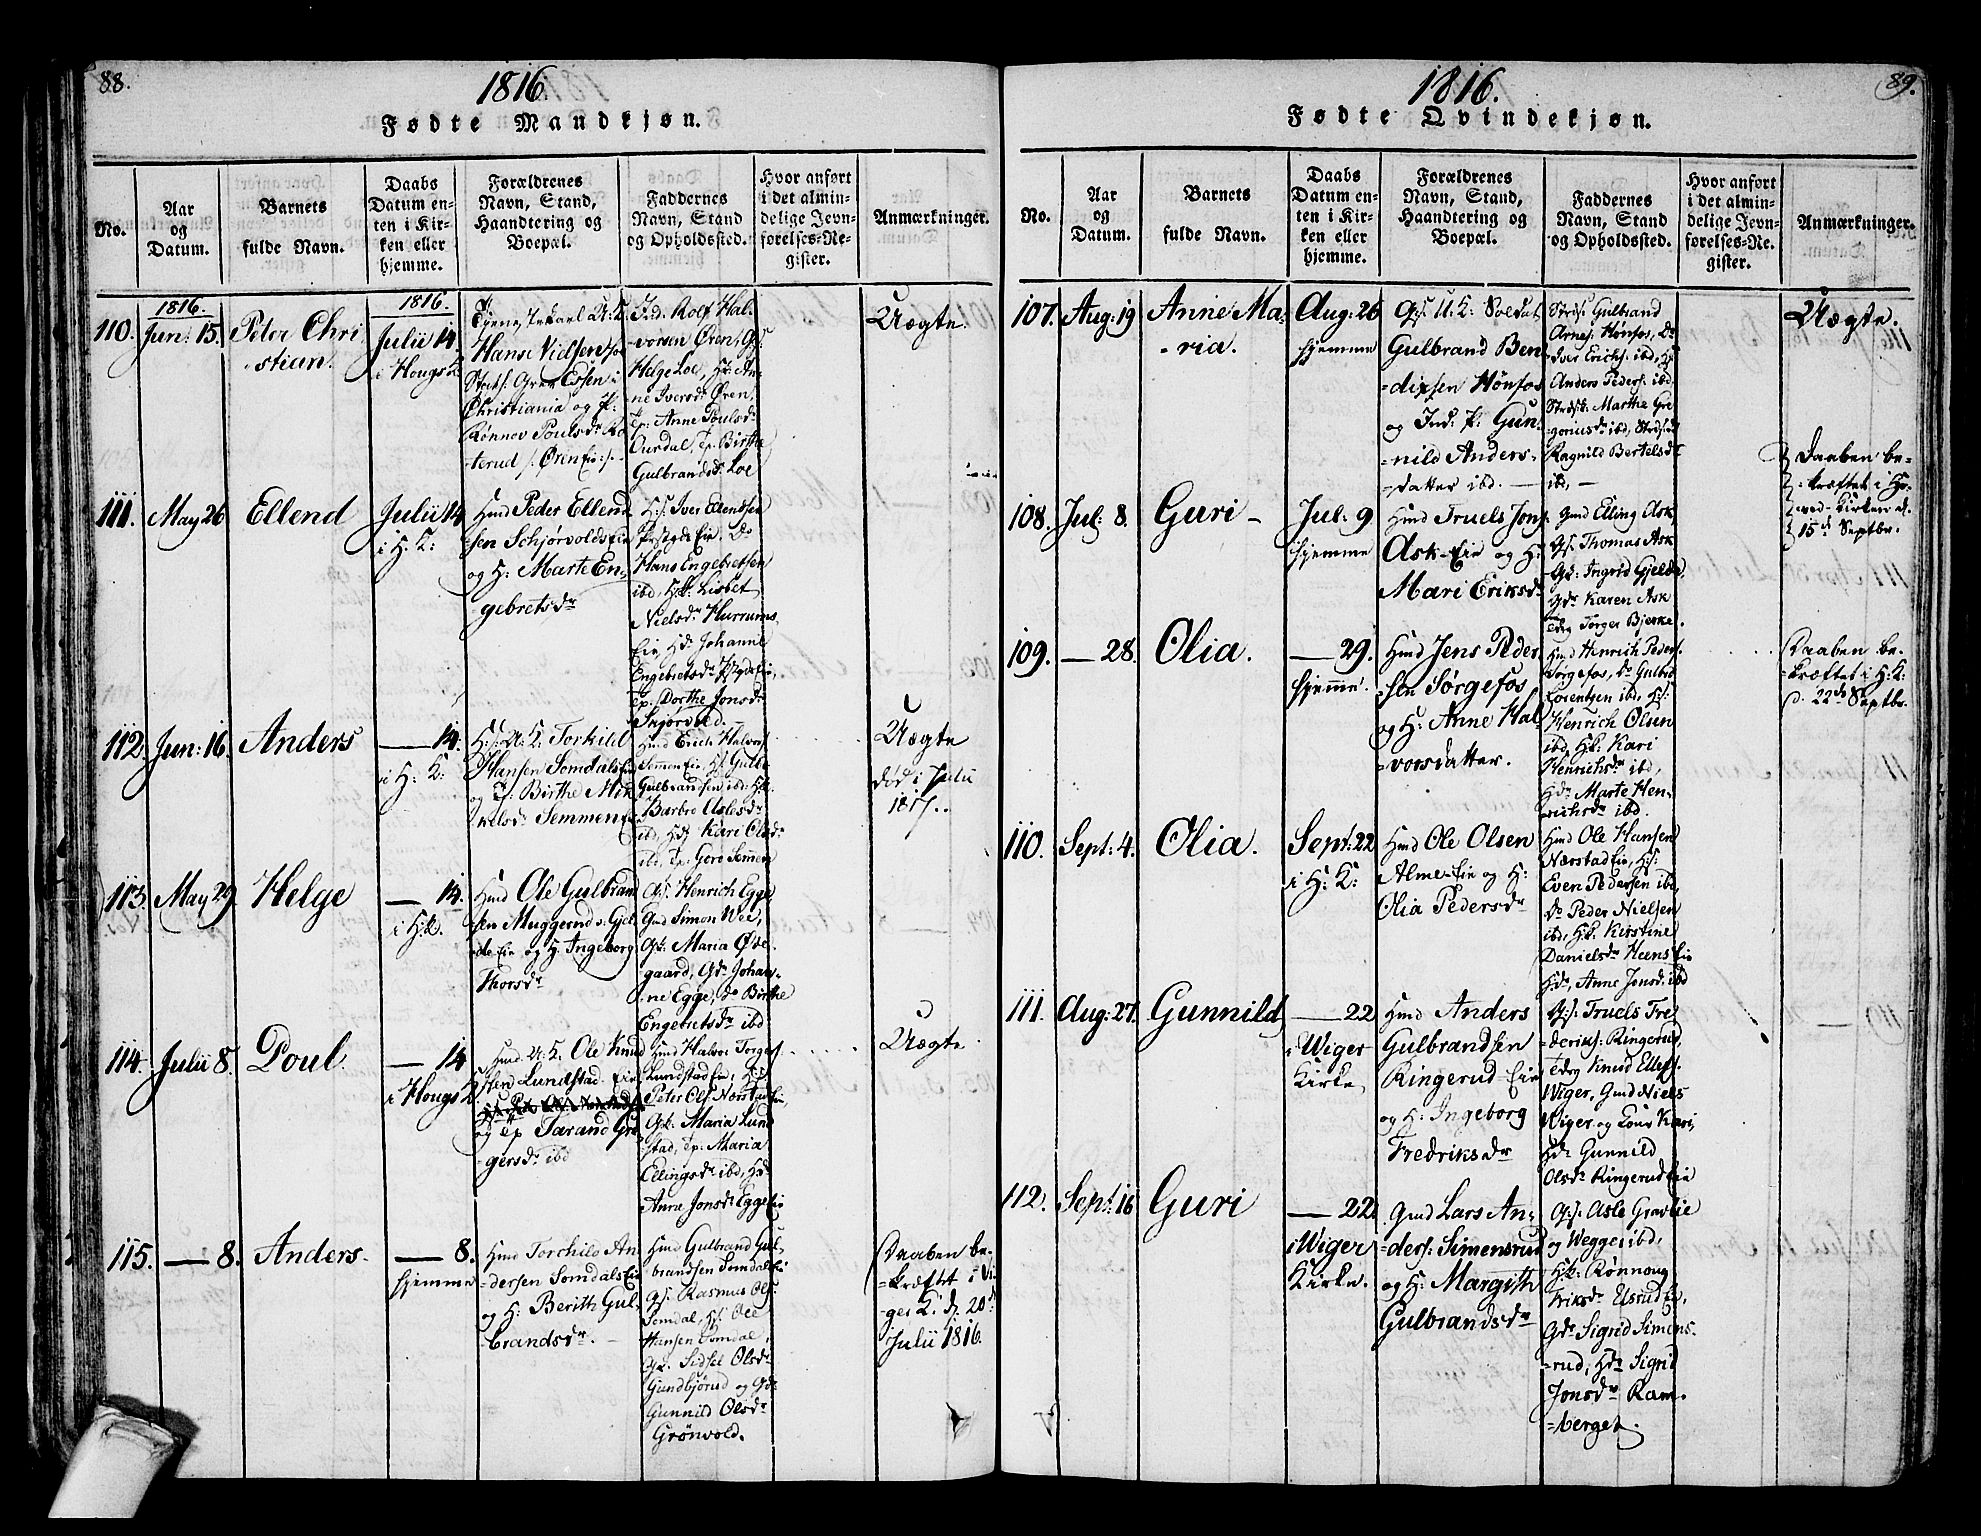 88.
1816
Fødte Mandkjøn.
No.
Aar
og
Datum.
Barnets
fulde Navn.
Daabs
Datum en-
ten i Kir-
ken eller
hjemme.
Forældrenes
Navn, Stand,
Haandtering og
Boepæl.
Faddernes
Navn, Stand
og Opholdssted.
Hvor anført
i det almin-
delige Jevn-
førelses-Re-
gister.
Anmærkninger.
1816.
110. Jun: 15.
Peter Chri
stian.
1816.
Julii 14
i Hougs K
Hans Nielsen
Christiania og P:
Rønnov Poulsdr
terud /: Øren Eie :/
Rolf Hal-
vorsen Øren, G/s
Helge Loe, H: An-
ne Iversdr Øren,
Tp: Anne Poulsdr
Tp: Birthe
Gulbrandsdr Loe
Uægte.
111. May 26
Ellend
Julii 14
i H: K:
Hmd Peder Ellend
sen Schjørvolds Eie
og H: Marte En-
gebretsdr
H/s. Iver Ellentsen
Eie, Do
Hans Engebretsen
ibd, Hk: Lisbet
Nielsdr Hurrums
Eie Hd: Johanne
Engebretsdr
Tp: Dorthe Jonsdr
Skjørvold.
112. Jun: 16.
Anders
— 14.
i H: K:
Torkild
Hansen Somdals Eie
og P: Birthe Mik
kelsdr Semmen Eie
Hmd Erich Halvors
Semmen Eie, H/s Gulb
Gulbrandsen, ibd: Hk.
Barbro Aslesdr
ibd, Hd: Kari Olsdr
ibd, Tp: Goro Semmen
Uægte
død i Julii
1817.
113. May 29.
Helge
— 14.
i H:K.
Hmd Ole Gulbrand
sen Muggerud v: Gjel
de Eie og H. Ingeborg
Thorsdr
G/s. Henrich Egge
Gmd Simon Wee,
Gk: Maria Øde-
gaard, Gdr Johan-
ne Egge, do Birthe
Engebretsdr ibd
114. Julii 8.
Poul.
— 14
i Hougs K
Hmd U:K. Ole Knud
sen Lundstad Eie
og Tp Tarand Gre
gersdr ibd
Hmd Halvor Torgers
Lundstad Eie, H:s:
Peter Ols Nærstad Eie,
Gk: Maria Lund
stad, Tp: Maria
Ellingsdr ibd, Hdr
Anne Jonsdr Egge Eie
Uægte.
115. — 8.
Anders.
— 8.
hjemme
Hmd Torchild An
=dersen Somdals Eie
og H: Berith Gul-
brandsdr.
Hmd Gulbrand Gul-
brandsen Somdal Eie
G/s. Rasmus Ols:
Somdal, H/s. Ole
Hansen Somdal,
Gk. Sidsel Olsdr
Gundbjørud og Gdr
Gunnild Olsdr
Grønvold.
Daaben be-
=kræftet i Vi
ger K. d. 20d
Julii 1816.
89.
1816.
Fødte Qvindekjøn.
No.
Aar
og
Datum.
Barnets
fulde Navn.
Daabs
Datum en-
ten i Kir-
ken eller
hjemme.
Forældrenes
Navn, Stand,
Haandtering og
Boepæl.
Faddernes
Navn, Stand
og Opholdssted.
Hvor anført
i det almin-
delige Jevn-
førelses-Re-
gister.
Anmærkninger.
107. Aug: 19
Anne Ma-
=ria.
Aug: 26
hjemme
G/s. U: K: Soldat
Gulbrand Ben
=dixsen Hønfos
og Ind: P: Gun-
=nild Anders-
=datter ibd. —
Strds: Gulbrand
Arnes: Hønfos, Do
Iver Erichs: ibd, H/s
Anders Peders: ibd,
Strdsk: Marthe Gre
=goriusdr ibd, Strdsdr
Ragnild Bertelsdr
ibd, —
Uægte.
108. Jul: 8.
Guri —
Jul: 9
hjemme
Hmd Truels Jons:
Ask-Eie og H:
Mari Eriksdr
Gmd Elling Ask,
G/s. Thomas Ask
Gk: Ingrid Gjelde,
Gdr Karen Ask
Torger Bjerke.
Daaben be-
=kræftet i Ho-
=ved-Kirken d.
15d Septbr.
109. — 28.
Olia.
— 29.
hjemme.
Hmd Jens Peder
sen Sørgefos
og H: Anne Hal
=vorsdatter.
Hmd Hinrich Peders:
Sørgefos, Do Gulbrd
Lorentzen ibd, H/s:
Henrich Olsen
ibd, Hk: Kari
Henrichsdr ibd,
Hdr Marte Hen-
richsdr ibd.
Daaben be-
=kræftet i H:K:
d. 22de Septbr.
110. Sept: 4.
Olia.
Sept: 22
i H: K:
Hmd Ole Olsen
Alme-Eie og H:
Olia Pedersdr
Hmd Ole Hansen
Nærstad Eie, H:s:
Even Pedersen ibd,
do Peder Nielsen
ibd, Hk. Kirstine
Danielsdr Heens Eie
Hdr, Anne Jonsd. ibd
111. Aug: 27.
Gunnild
— 22
i Wiger
Kirke
Hmd Anders
Gulbrandsen
Ringerud-Eie
og H: Ingeborg
Fredriksdr
G/s. Truels Fre
deriks: Ringerud,
Knud Ellefs.
Wiger, Gmd Niels
Wiger og Kari,
Hdr Gunnild
Olsdr Ringerud Eie
112. Sept: 16
Guri
— 22.
i Wiger
Kirke.
Gmd Lars An-
=ders: Simensrud
og H: Margith
Gulbrandsdr
G/s. Asle Gravlie
og Wegger ibd,
Hk: Rønnoug
Eriksdr Elsrud Eie,
Gdr Sigrid Simens-
=rud, Hdr Sigrid
Jonsdr Ram-
=berget.